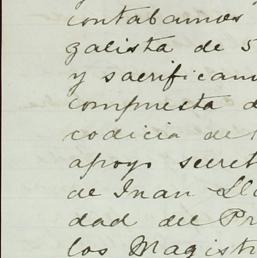 contabamos
galista de 5
y sacrifican
compuesta d
codicia de
apoyo secret
de Juan Ll
dad del Pr
los Magistr